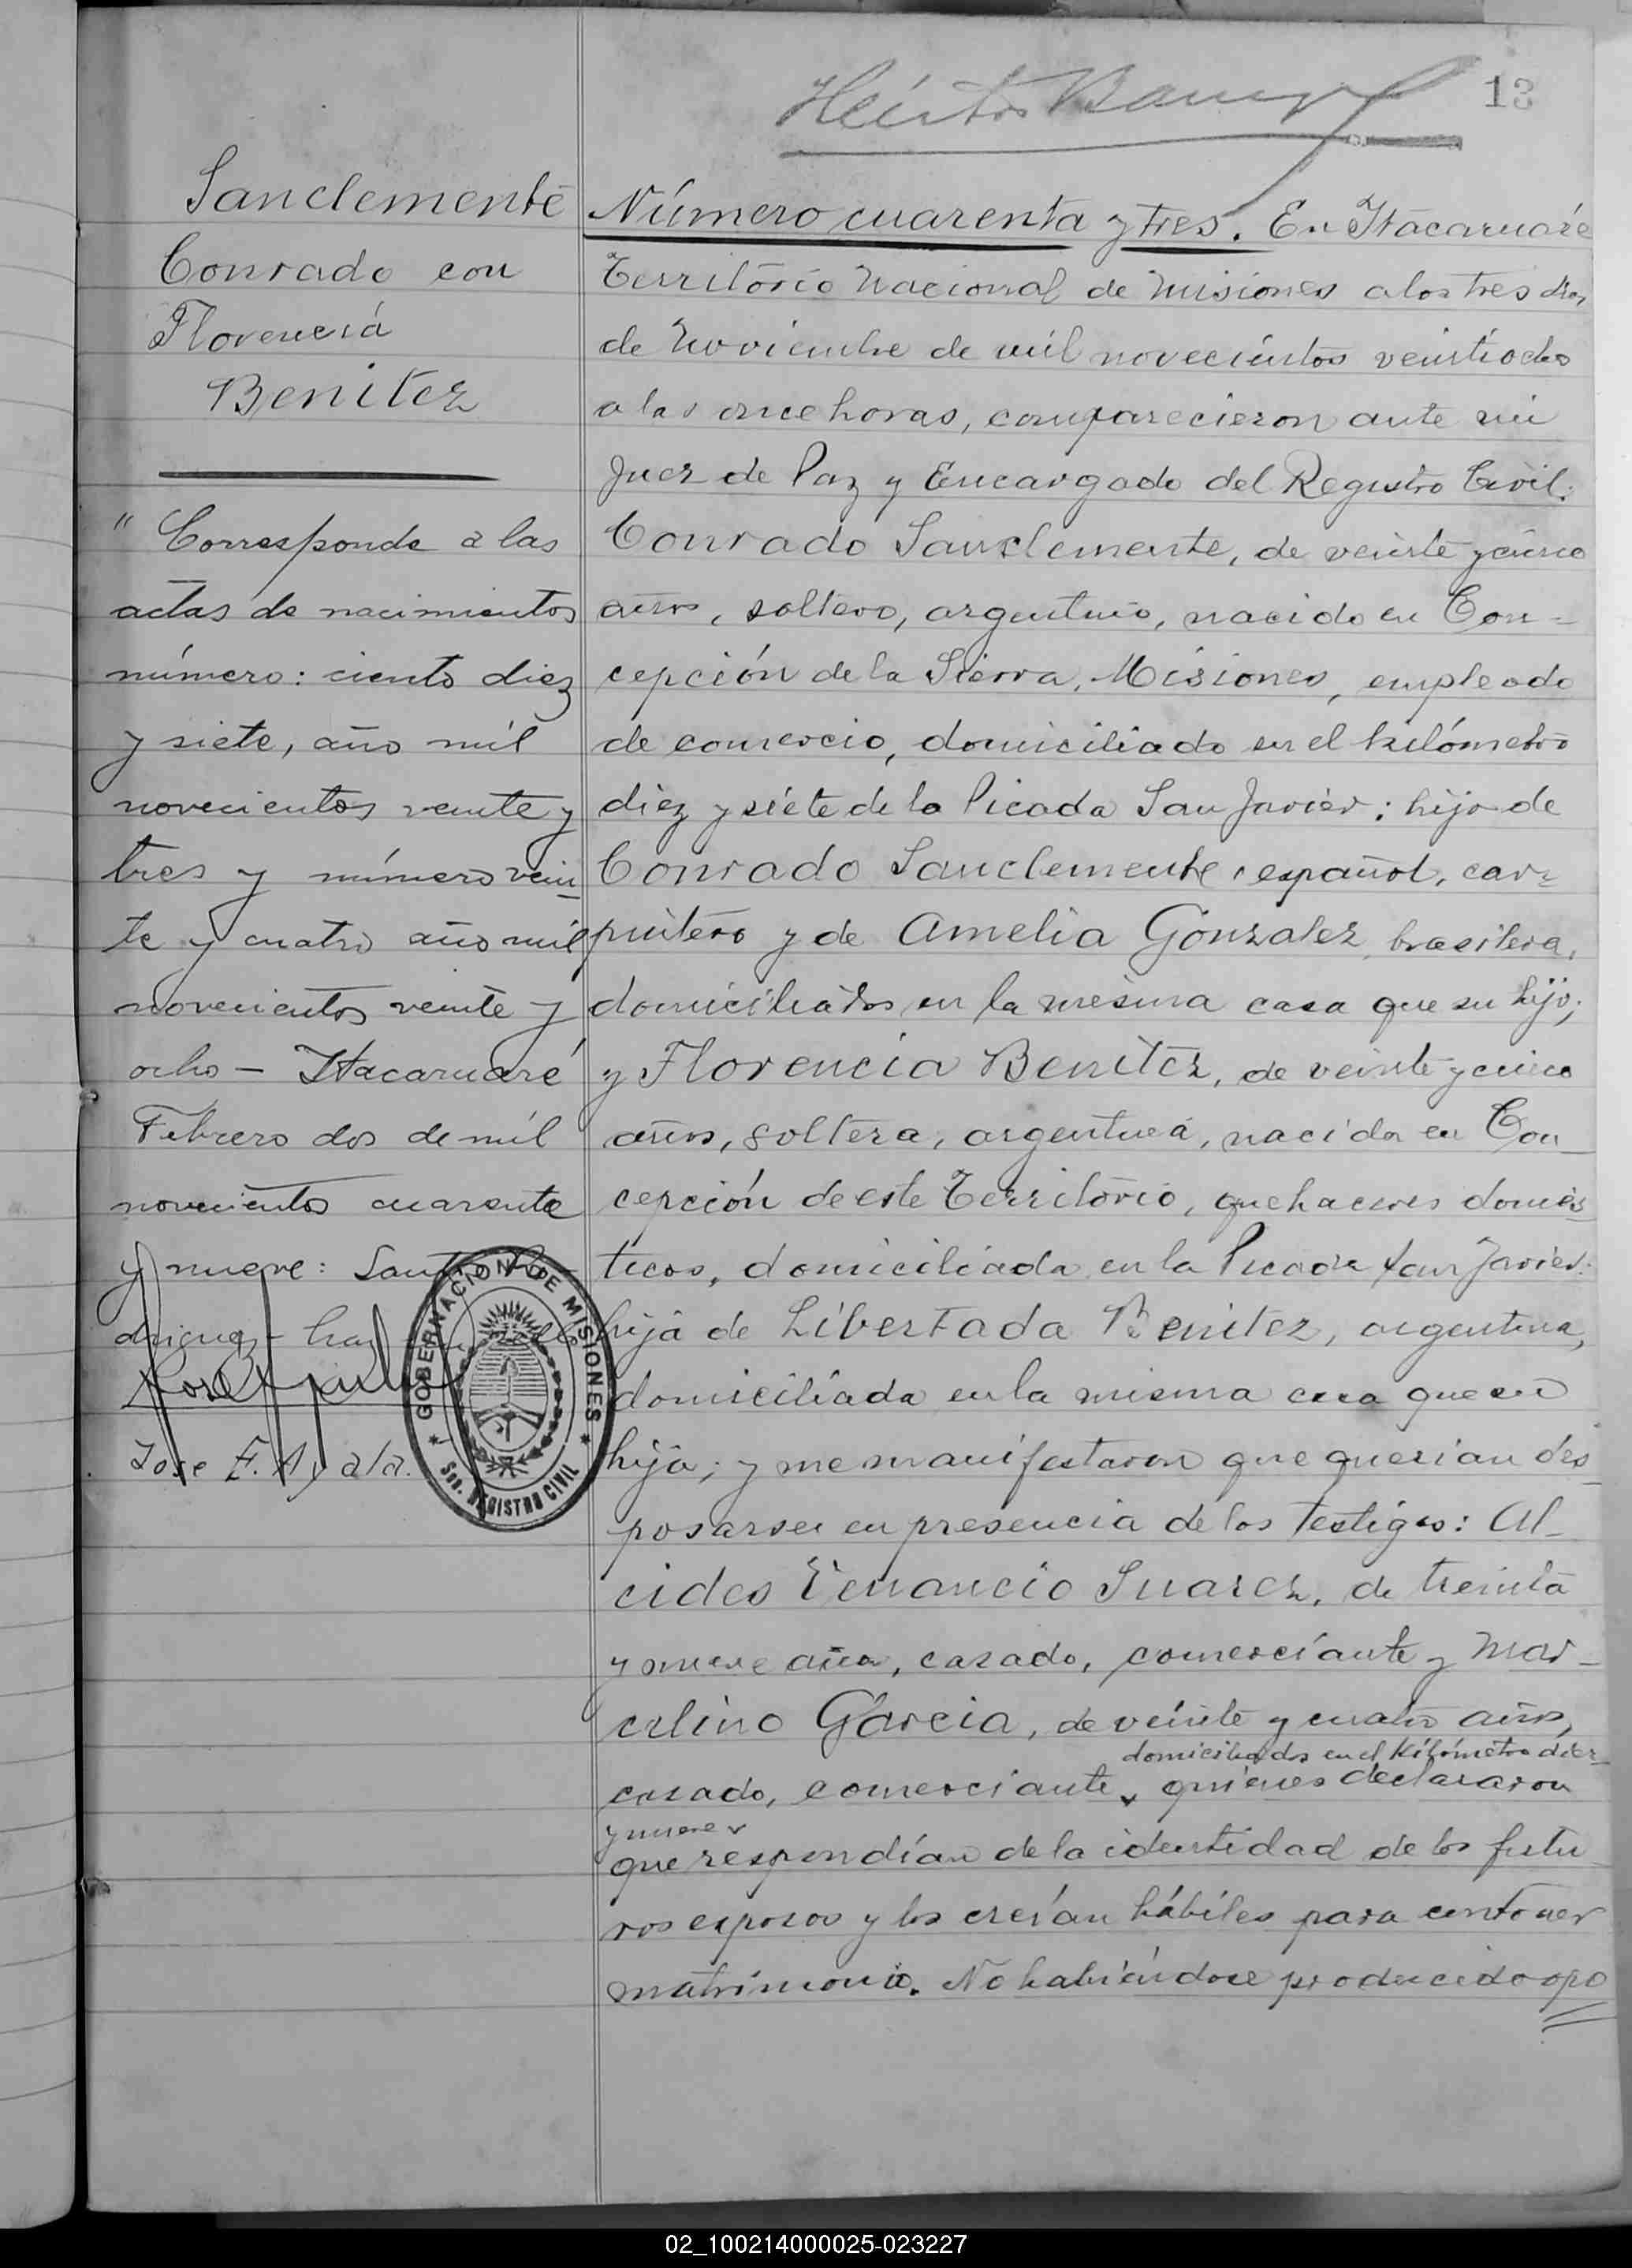 13
Sanclemente
Conrado con
Florencia
Benitez
"Corresponde a las
actas de nacimientos
número: ciento diez
y siete, año mil
novecientos veinte y
tres y número vein
te y cuatro año mil
novecientos veinte y
ocho - Itacaruaré
Febrero dos de mil
novecientos cuarenta
y nueve: Santo Ro-
driguez - hay un sello
Jose E. Ayala.
GOBERNACION DE MISIONES
Sec. REGISTRO CIVIL
Número cuarenta y tres. En Itacaruaré
Territorio Nacional de Misiones a los tres dias
de Noviembre de mil novecientos veintiocho
a las once horas, comparecieron ante mi
Juez de Paz y Encargado del Registro Civil:
Conrado Sanclemente, de veinte y cinco
años, soltero, argentino, nacido en Con=
cepción de la Sierra, Misiones, empleado
de comercio, domiciliado en el kilómetro
diez y siete de la Picada San Javier; hijo de
Conrado Sanclemente, español, car=
pintero y de Amelia Gonzalez, brasilera,
domiciliados en la mesma casa que su hijo;
y Florencia Benitez, de veinte y cinco
años, soltera, argentina, nacida en Con
cepción de este Territorio, quehaceres domés
ticos, domiciliada en la Picada San Javier:
hija de Libertada Benitez, argentina,
domiciliada en la misma casa que su
hija; y me manifestaron que querian des
posarse en presencia de los testigos: Al-
cides Venancio Suarez, de treinta
y nueve años, casado, comerciante y Mar-
celino Garcia, de veinte y cuatro años,
domiciliados en el Kilómetro diez
casado, comerciante, quienes declararon
y nueve
que respondían de la identidad de los futu
ros esposos y los creían hábiles para contraer
matrimonio. No habiéndose producido opo
02_100214000025-023227